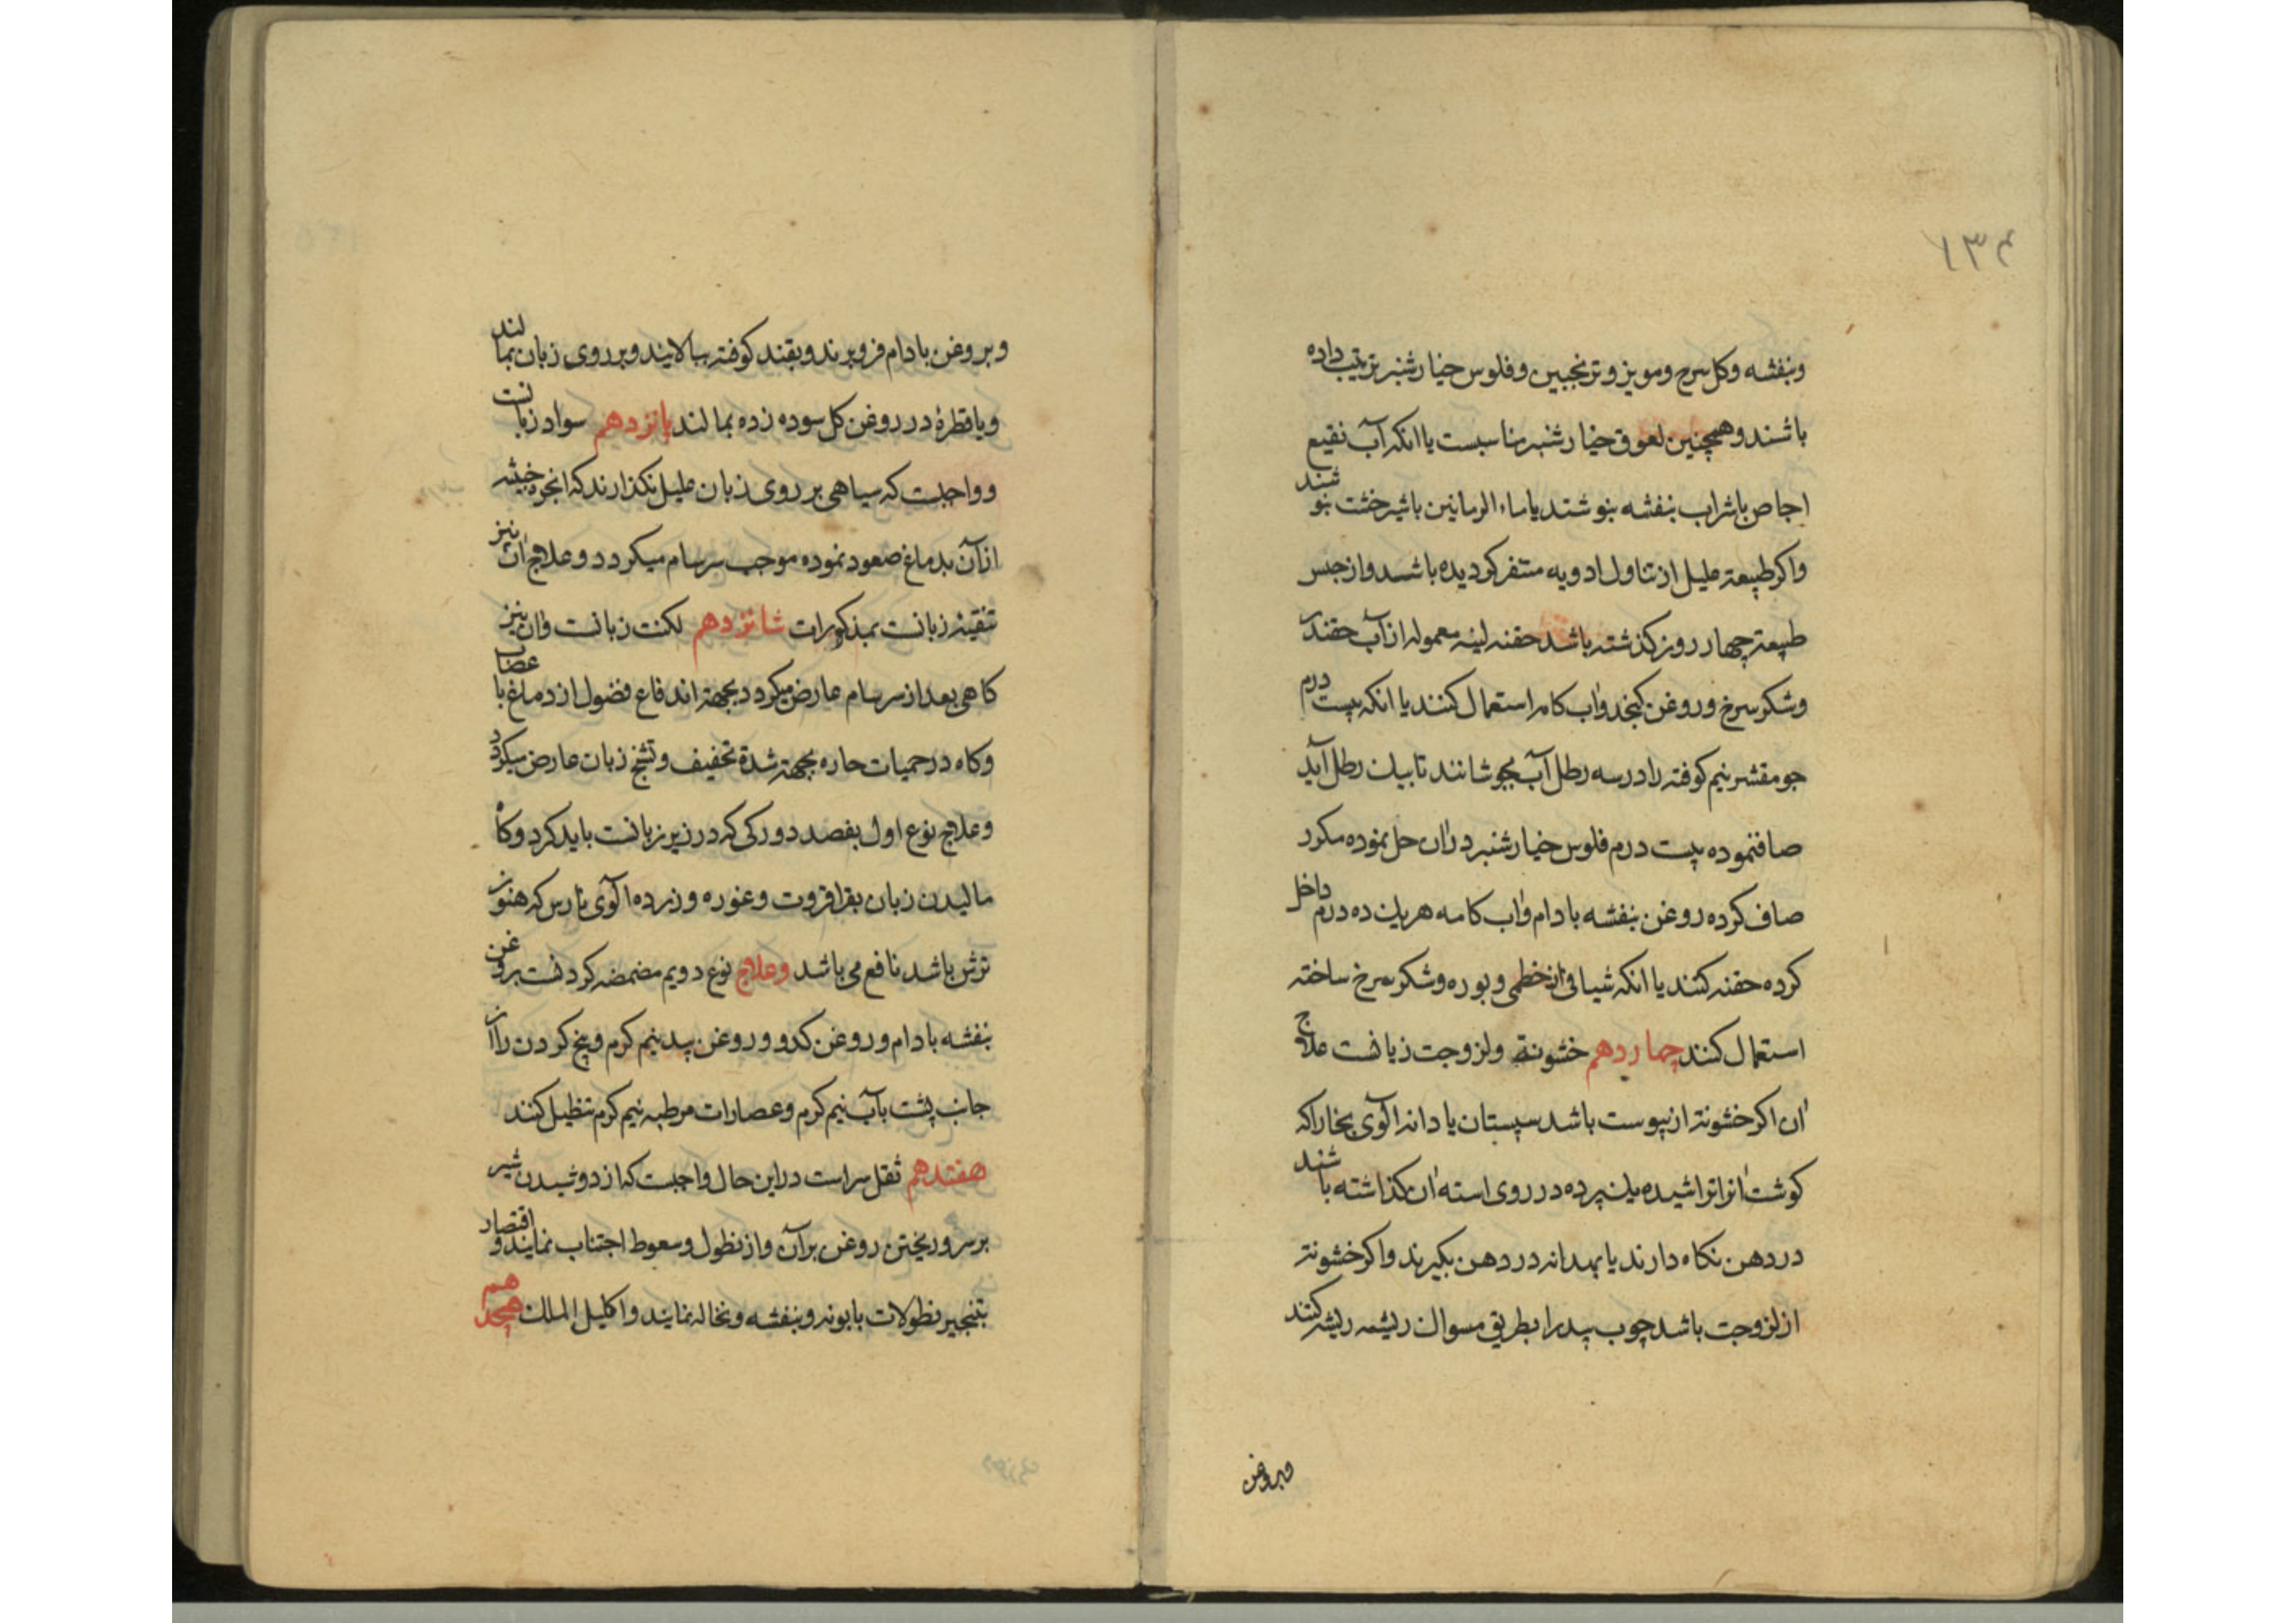 ۱۳۴
وبنفشه وکل سرخ ومویز وترنجبین وفلوس خیار شنبر ترتیب داده
باشند وهمچنین لعوق خیار شنبر مناسبست یا انکه آب نقیع
اجاص باشراب بنفشه بنوشند یا ماء الرمانین باشیرخشت بنوشند
واکر طبیعته علیل از تناول ادویه متنفر کردیده باشد واز حبس
طبیعته چهار روز کذشته باشد حقنه لینه معموله از آب چقندر
وشکر سرخ وروغن کنجد واب کامه استعمال کنند یا انکه بیست درم
جو مقشر نیم کوفته را در سه رطل آب بجوشانند تا بیک رطل آید
صافنموده بیست درم فلوس خیار شنبر در ان حل نموده مکرر
صاف کرده روغن بنفشه بادام واب کامه هریک ده درم داخل
کرده حقنه کنند یا انکه شیافی از خطمی وبوره وشکر سرخ ساخته
استعمال کنند چهاردهم خشونة ولزوجت زبانست علاج
ان اکر خشونته از یبوست باشد سپستان یا دانه الوی بخارا که
کوشت انرا تراشیده یک پرده در روی استه ان کذاشته باشند
در دهن نکاه دارند یا بهدانه در دهن بکیرند واکر خشونته
از لزوجت باشد چوب بید را بطریق مسواک ریشه ریشه کنند
وبروغن
وبروغن بادام فرو برند وبقند کوفته بیالایند وبر روی زبان بمالند
ویا قطرهٔ در روغن کل سوده زده بمالند پانزدهم سواد زبانست
وواجبست که سیاهی بر روی زبان علیل نکذارند که ابخره خبیثه
از آن بدماغ صعود نموده موجب سرسام میکردد وعلاج ان نیز
تنقیهٔ زبانست بمذکورات شانزدهم لکنت زبانست وان نیز
کاهی بعد از سرسام عارض میکردد بجهته اندفاع فضول از دماغ باعضاب
وکاه در حمیات حاره بجهته شدة تخفیف وتشنج زبان عارض میکردد
وعلاج نوع اول بفصد دو رکی که در زیر زبانست باید کرد وکاه
مالیدن زبان بقراقروت وغوره وزرده الوی نارس که هنوز
ترش باشد نافع می باشد وعلاج نوع دویم مضمضه کردنست بروغن
بنفشه بادام وروغن کدو وروغن بید نیم کرم وبخ کردن را از
جانب پشت بآب نیم کرم وعصارات مرطبه نیم کرم تنطیل کنند
هفتدهم ثقل سراست در این حال واجبست که از دوشیدن شیر
برسر وریختن روغن بر آن واز نطول وسعوط اجتناب نمایند واقتصار
بتبخیر نطولات بابونه وبنفشه ونخاله نمایند واکلیل الملک هیجدهم